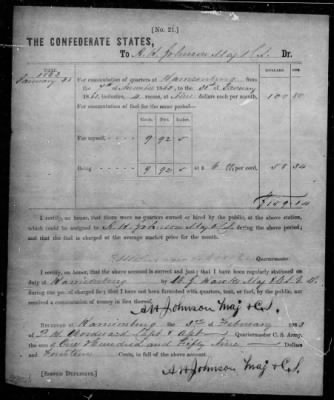 [No. 21.]
THE CONFEDERATE STATES,
To A. H. Johnson Maj & C.S. Dr.
DATE. DOLLARS CTS.
1863
January 31 For commutation of quarters at from
the of 186 , to the 31st of January
186 , inclusive, rooms, at dollars each per month, 100
For commutation of fuel for the same period—
Cords. Feet. Inches.
For myself, 9 92 5
Being 9 92 5 at $ 6 per cord,
I certify, on honor, that there were no quarters owned or hired by the public, at the above station,
which could be assigned to A. H. Johnson Maj & C.S. during the above period; and
that the fuel is charged at the average market price for the month.
Quartermaster.
I certify, on honor, that the above account is correct and just; that I have been regularly stationed on
duty at by W. J. Hawks Maj & C.S.
during the period charged for; that I have not been furnished with quarters, tent, or fuel, by the public, nor
received a commutation of money in lieu thereof.
A H Johnson Maj & C.S.
Received at the of February 186
of Woodward Capt & Quartermaster C. S. Army,
the sum of One Hundred and Fifty Nine dollars and
Fourteen Cents, in full of the above account.
[Signed Duplicates.] A H Johnson Maj & C.S.